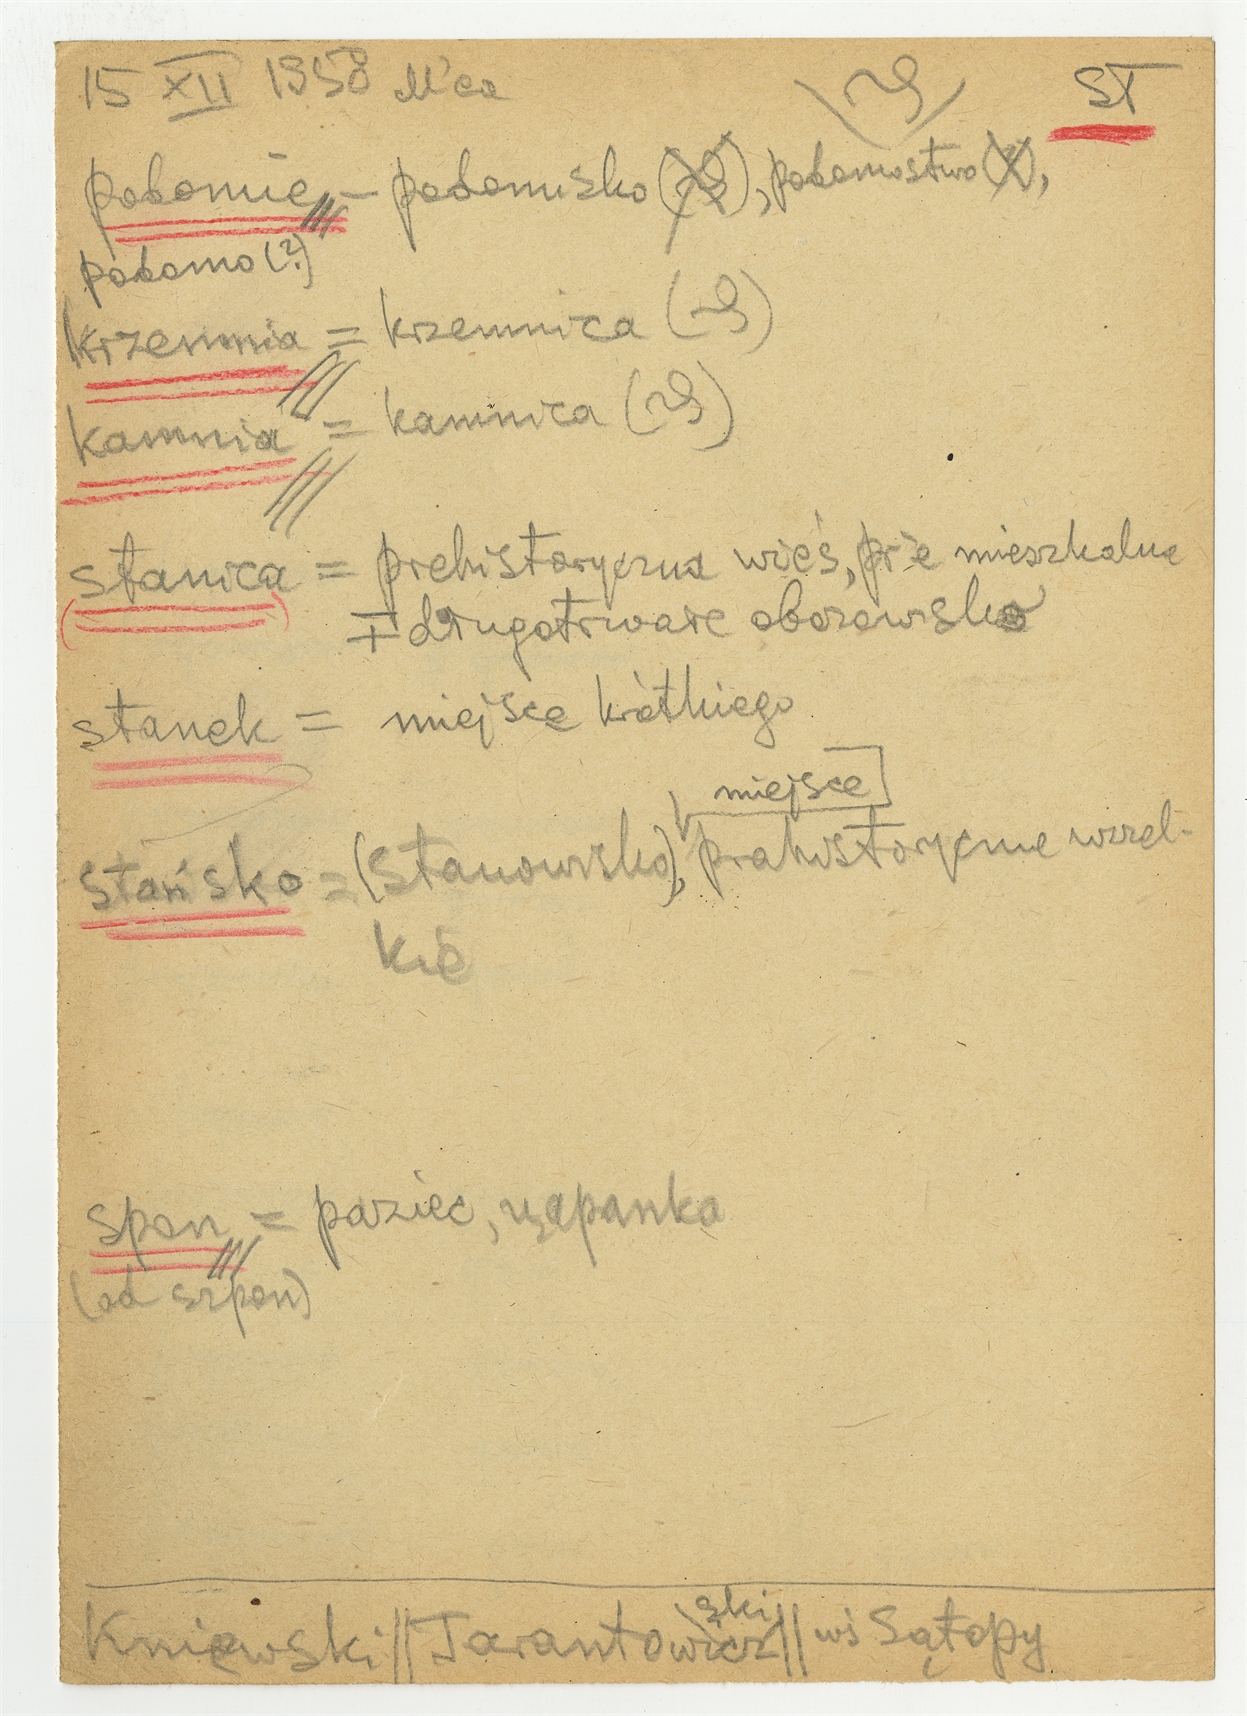 15 XII 1958 M'ca ST
pobomie – pobomisko, pobomostwo,
pobomo (?)
krzemnia = krzemnica
kamnia = kamnica
stanica = prehistoryczna wieś, mieszkalne
+ długotrwałe obozowisko
stanek = miejsce krótkiego
miejsce
stańsko = (stanowisko), prahistoryczne wszel-
kie
spon = paziec, zapanka
(od szpon)
ski
Kniewski || Tarantowicz || wś Sątopy